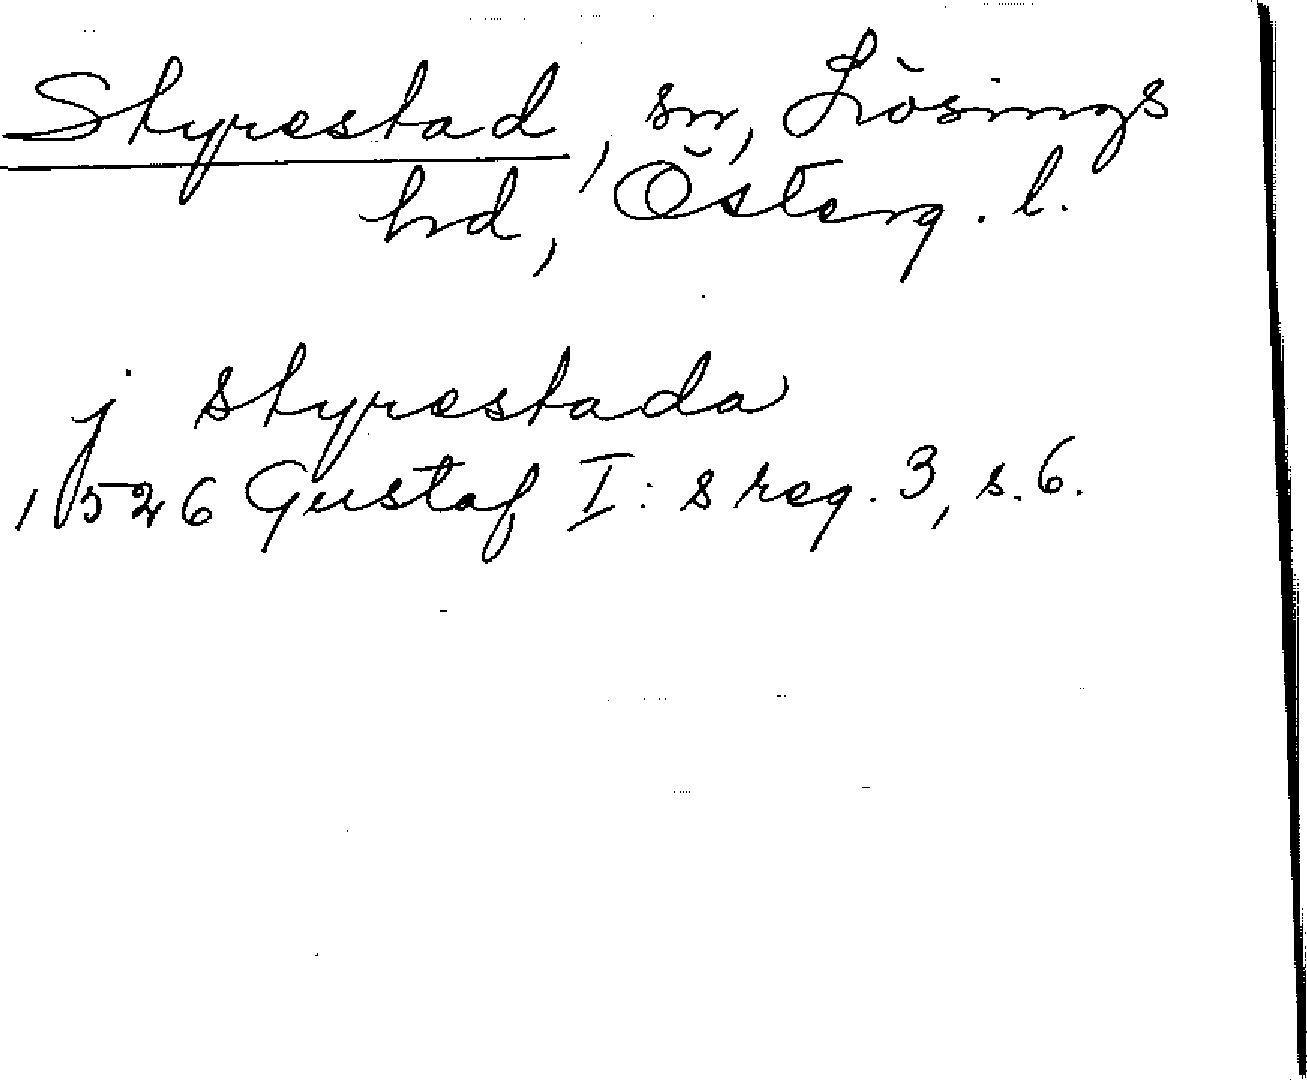 Styrestad, sn, Lösings
hd, Österg. l.
j styrestada
1526 Gustaf I:s reg. 3, s. 6.